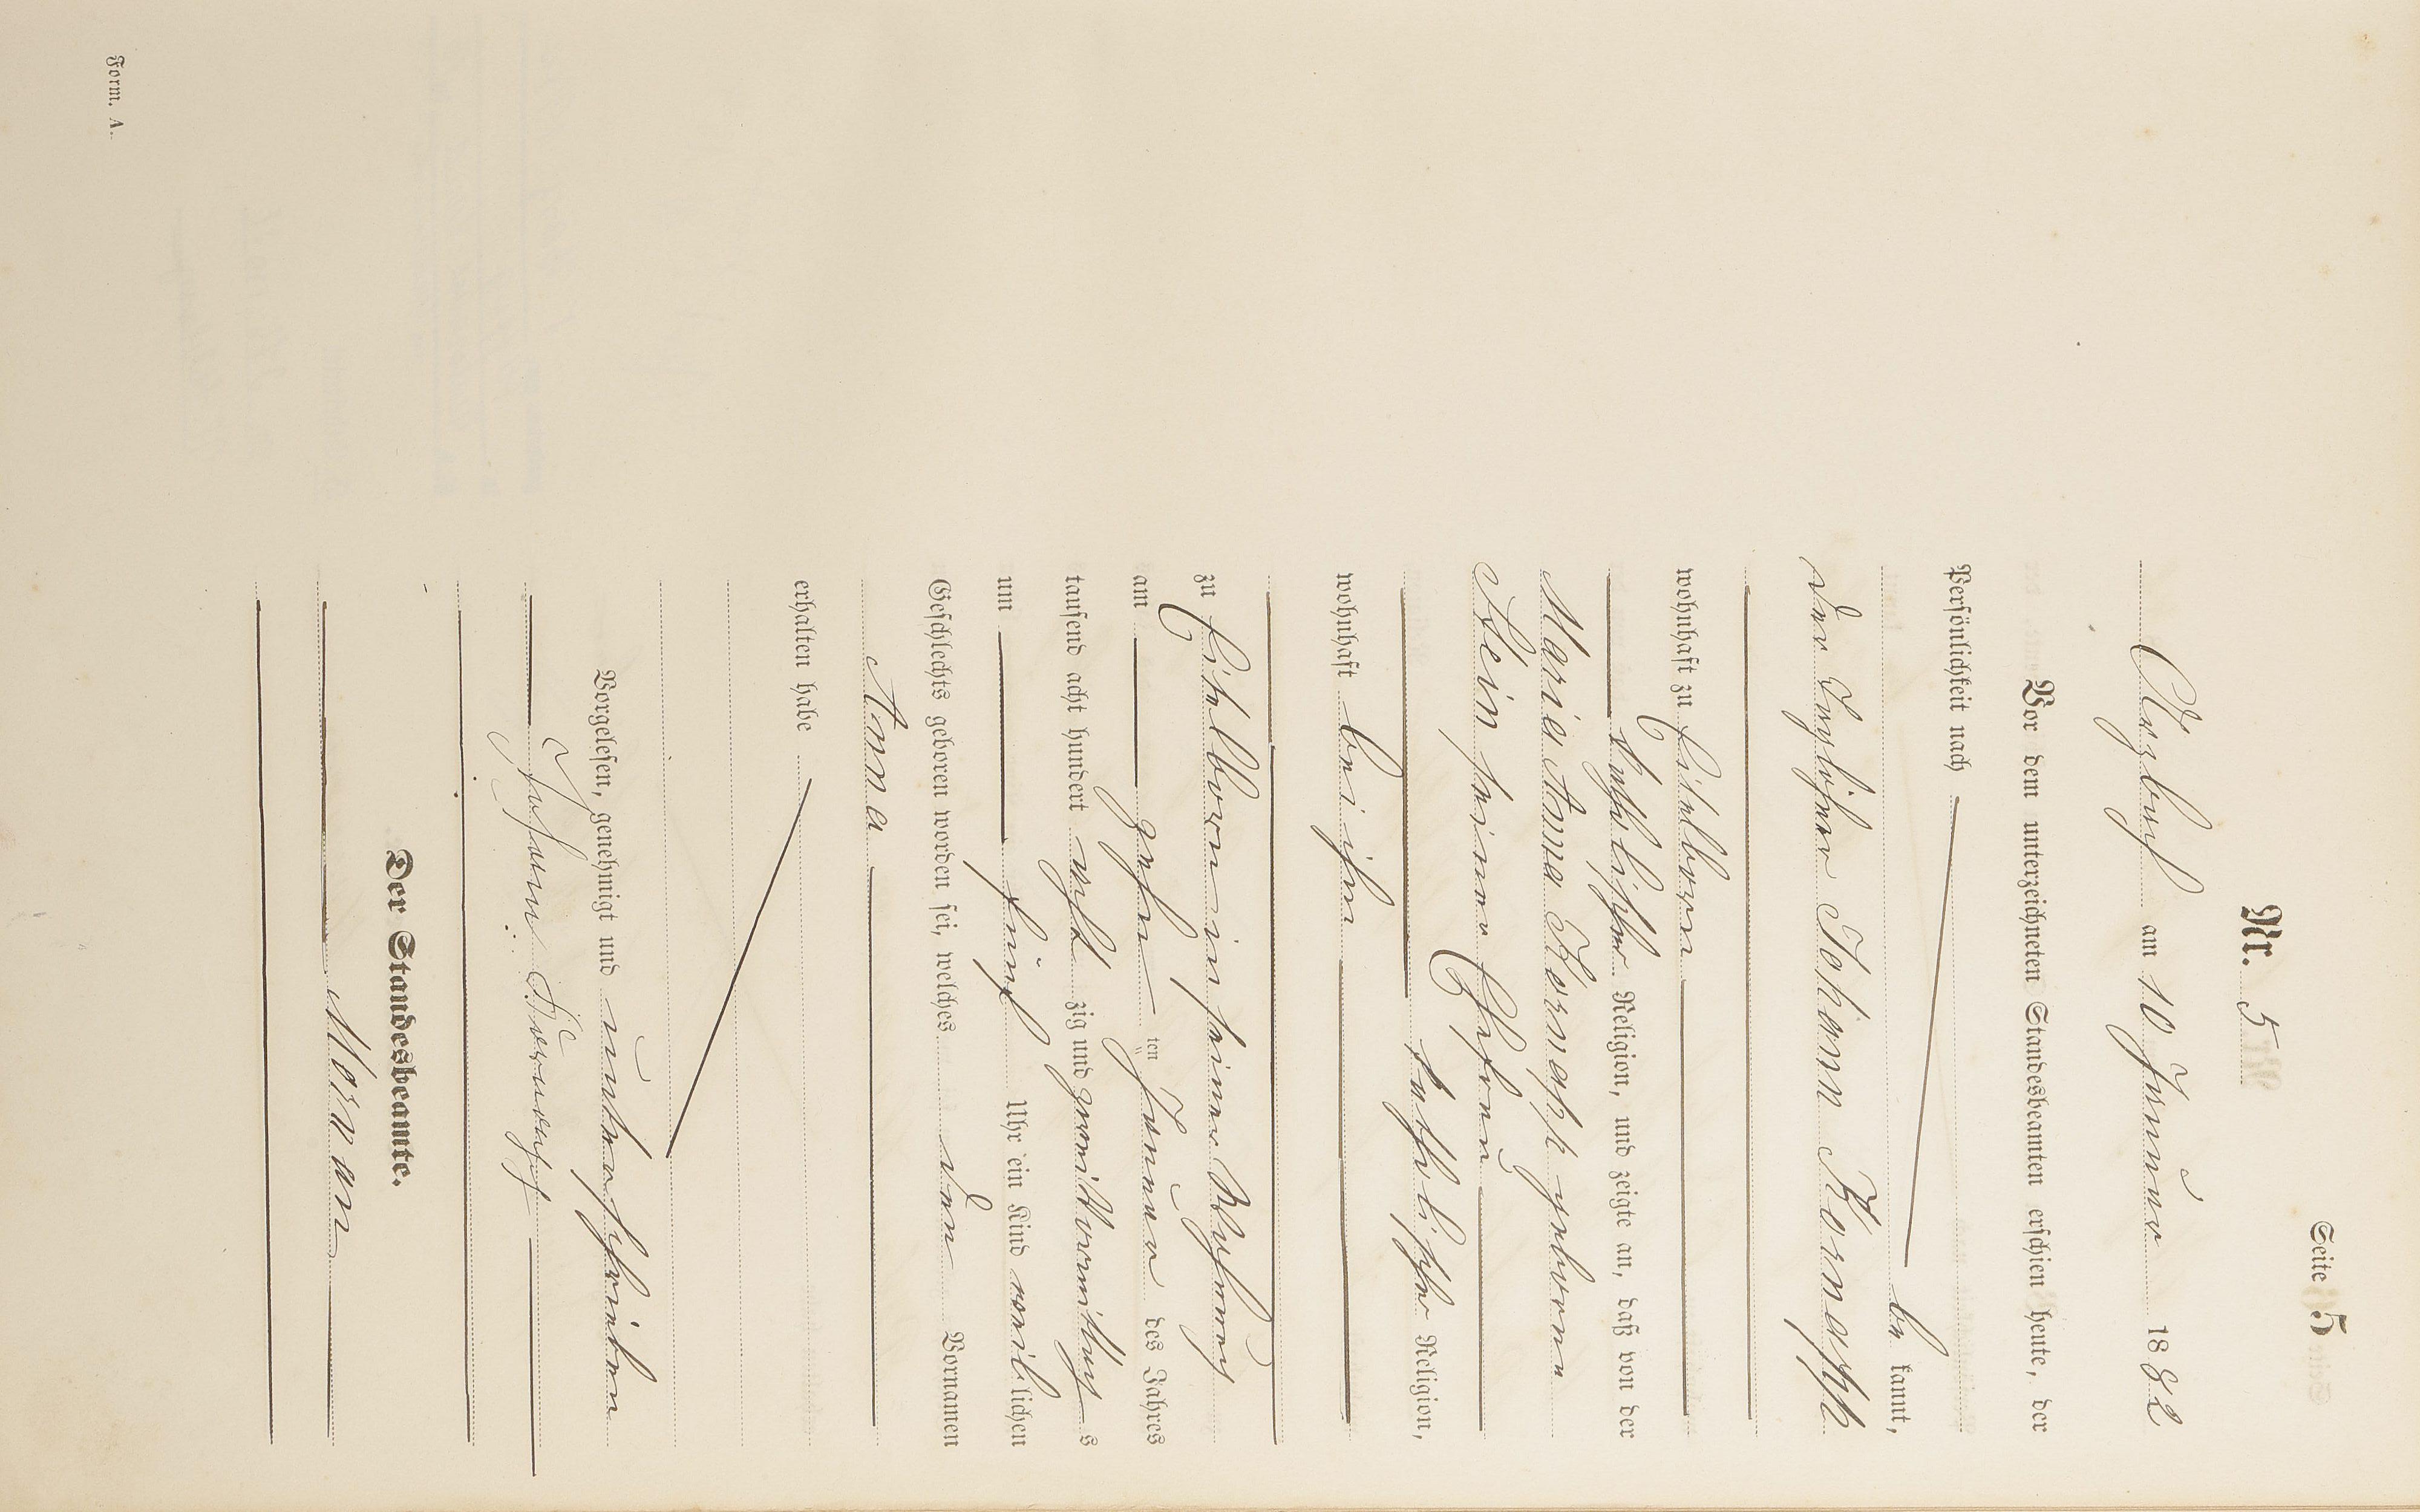 Seite 5
Nr. 5
Arzbach am 10 Januar 1882
Vor dem unterzeichneten Standesbeamten erschien heute, der
Persönlichkeit nach
be kannt,
der Taglöhner Johann Kornapp
wohnhaft zu Eitelborn
katholischer Religion, und zeigte an, daß von der
Maria Anna Kornapp geborene
Stein seiner Ehefrau
katholischer Religion,
wohnhaft bei ihm
zu Eitelborn in seiner Wohnung
am zehn ten Januar des Jahres
tausend acht hundert acht zig und zwei Vormittags
um fünf Uhr ein Kind weib lichen
Geschlechts geboren worden sei, welches den Vornamen
Anna
erhalten habe
Vorgelesen, genehmigt und unterschrieben
Johann Kornapp
Der Standesbeamte.
Form. A.